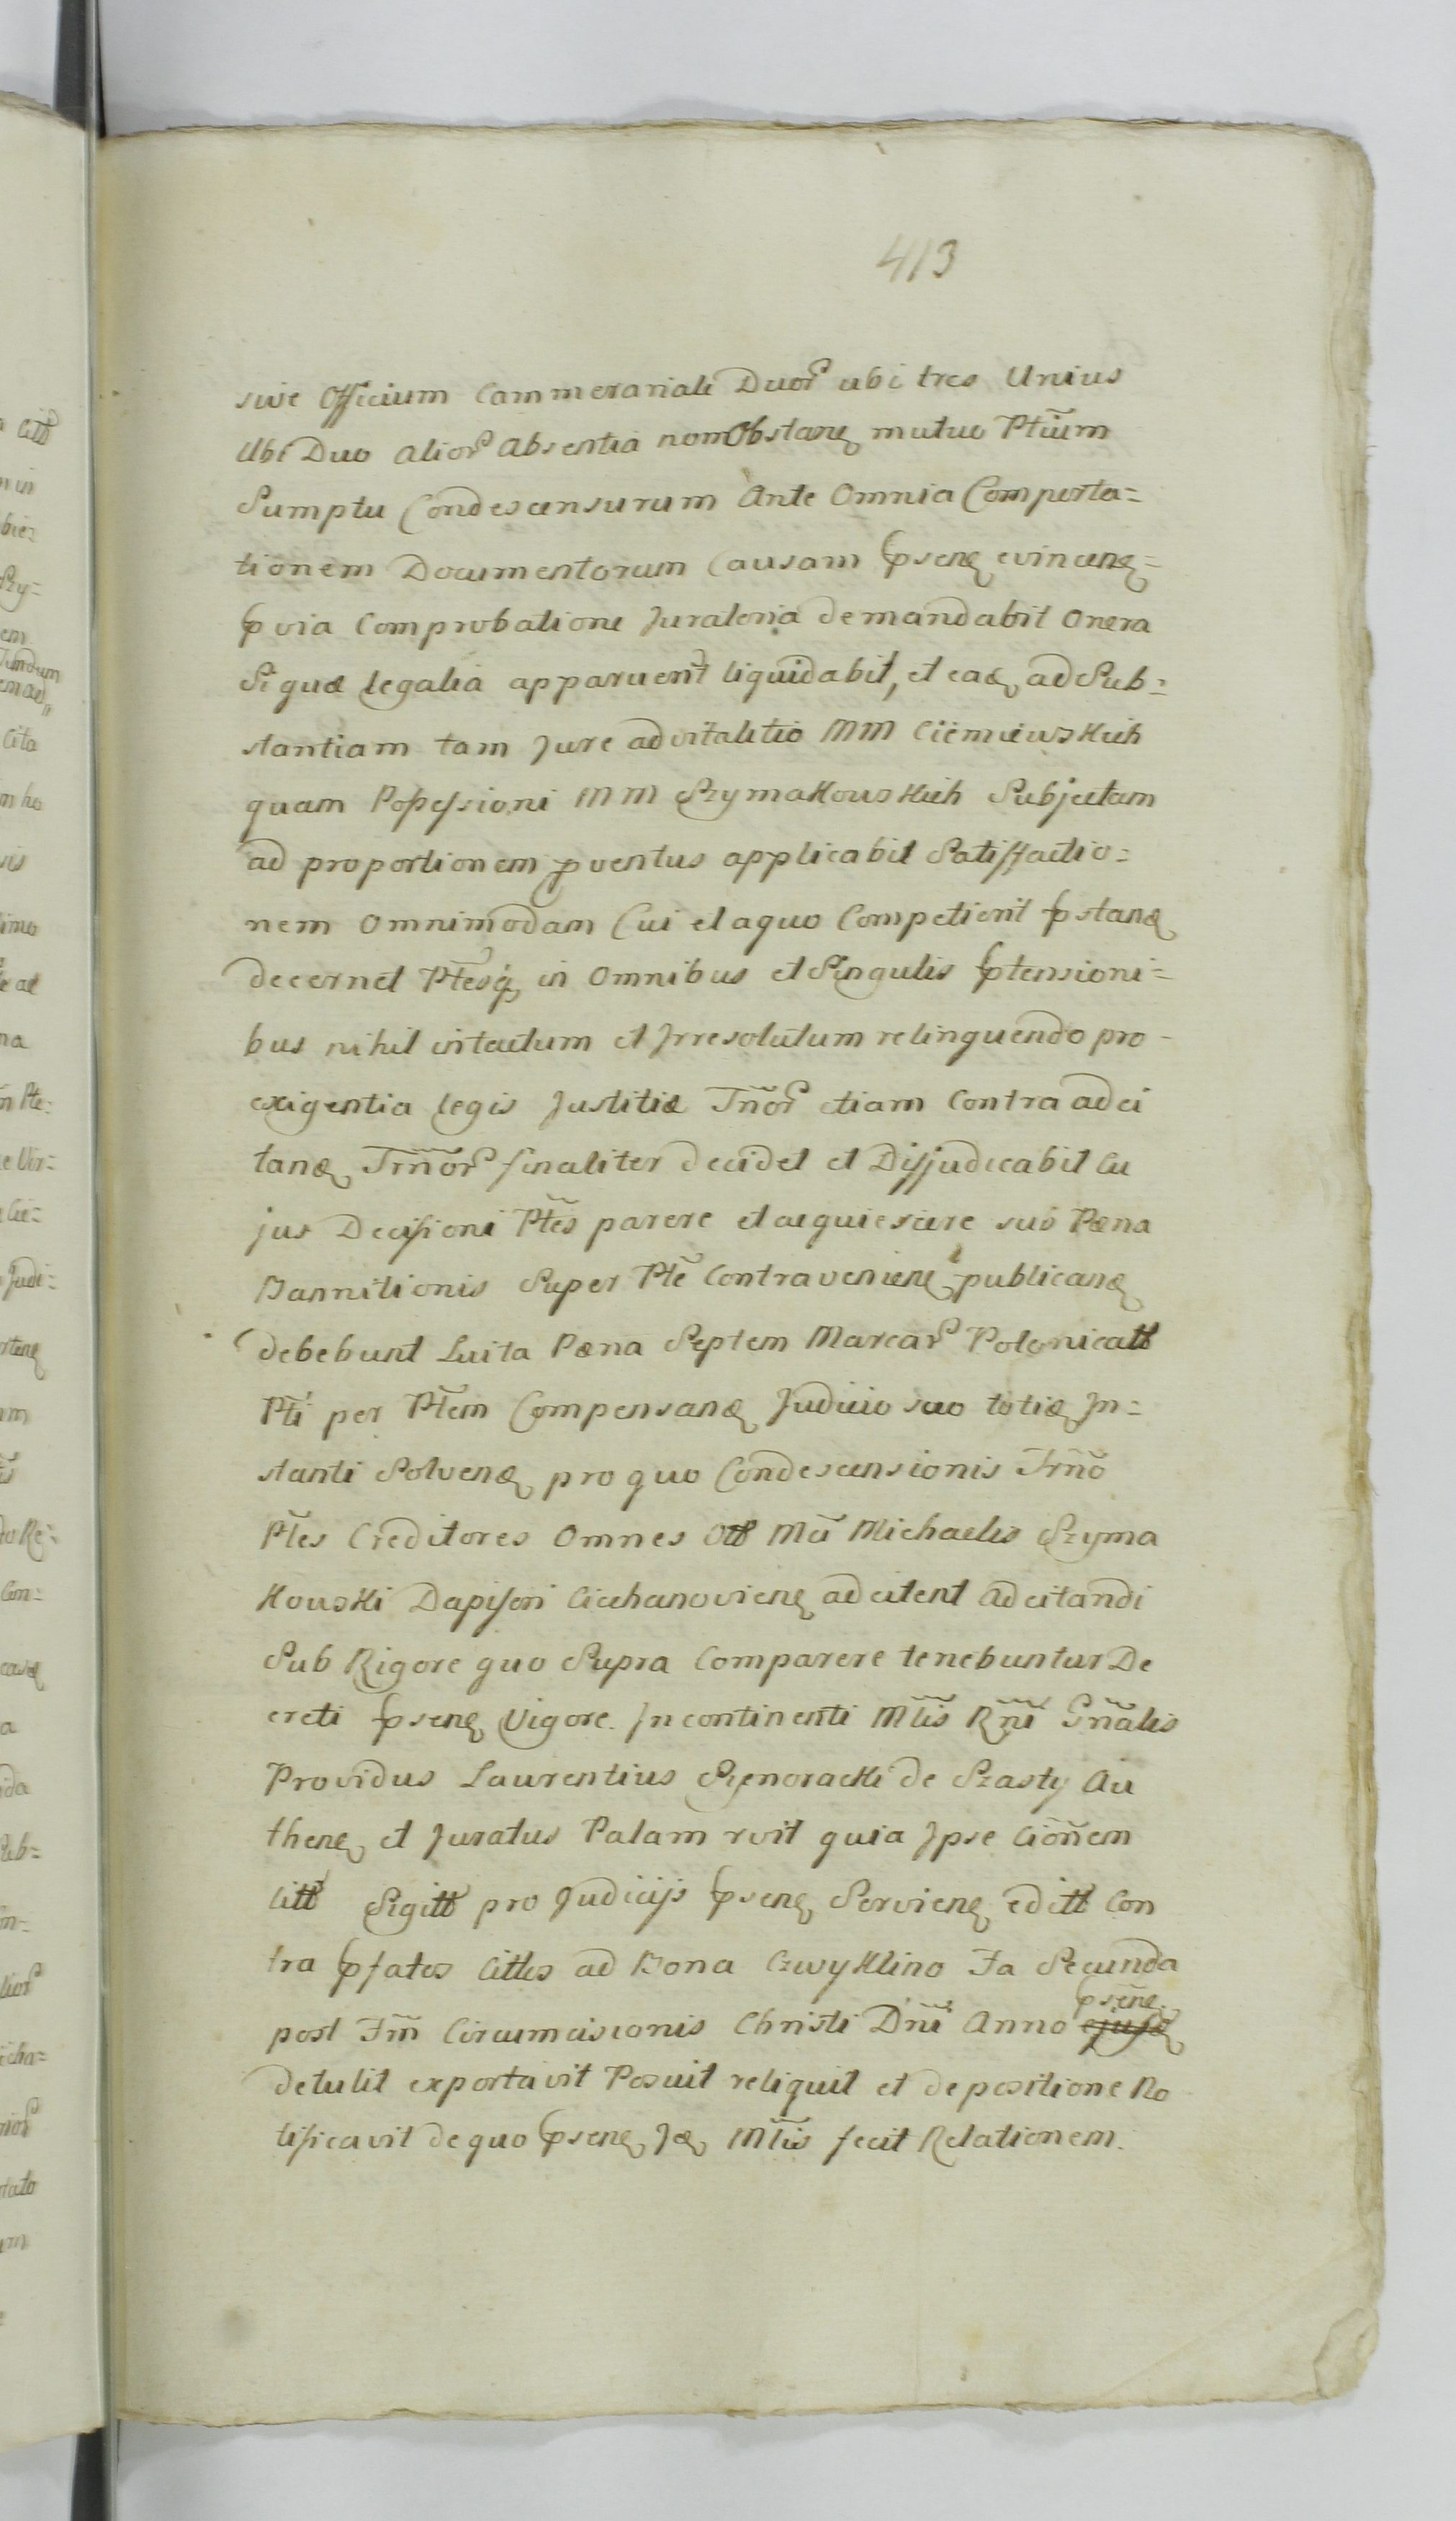 413
sive Officium Cammerariale Duor ubi tres Unius
Ubi Duo alior Absentia non Obstanę mutuo Ptium
Sumptu Condescensurum Ante Omnia Comporta=
tionem Documentorum Causam pseñę evincenę=
pvia Comprobatione Juratoria demandabit Onera
Si quæ legalia apparuerit liquidabit, et eaę ad Sub=
stantiam tam Jure advitalitio MM Ciemiewskich
quam Possessioni MM Szymakowskich Subjectam
ad proportionem pventus applicabit Satisfactio=
nem Omnimodam Cui et a quo Competierit pstanę
decernet Ptesq in Omnibus et Singulis ptensioni=
bus nihil intactum et Irresolutum relinquendo pro
exigentia legis Justitiæ Tñor etiam Contra adci
tanę Trmñor finaliter decidet et Disjudicabit Cu
jus Decisioni Ptes parere et acquiescere sub Pæna
Bannitionis Super Pte Contravenienę publicanę
debebunt Luita Pæna Septem Marcar Polonicatt
Pti per Ptem Compensanę Judicio suo totię In=
stanti Solvenę pro quo Condescensionis Trño
Ptes Creditores Omnes Ott Mci Michaelis Szyma
kowski Dapiferi Ciechanovienę adcitent Adcitandi
Sub Rigore quo Supra Comparere tenebuntur De
creti psenę Vigore. In continenti Mtlis Rñi Gñalis
Providus Laurentius de Szasty Au
thenę et Juratus Palam rvit quia Ipse Ciõnem
Citt Sigitt pro Judicijs psenę Servienę editt Con
tra pfatos Cittos ad Bona Czwyklino Fa Secunda
post Fm Circumcisionis Christi Dñi Anno ejusdę psenę
detulit exportavit Posuit reliquit et de positione No
tificavit de quo psenę Ję Mtlis fecit Relationem.